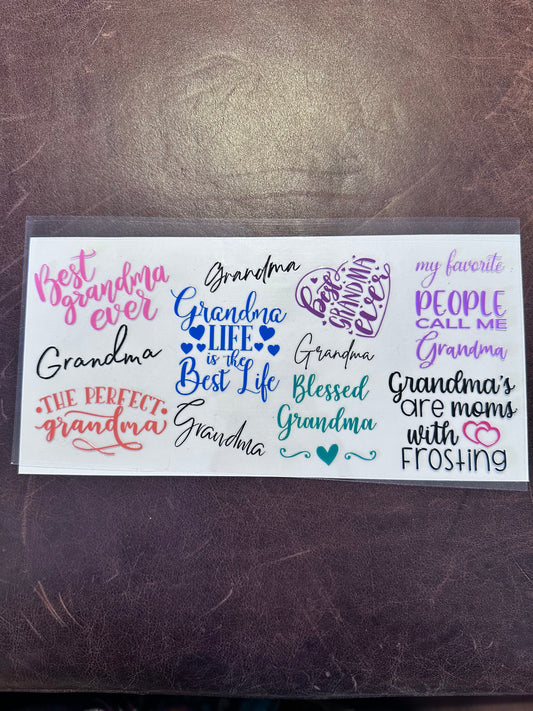 Best
grandma
ever
Grandma
THE PERFECT
grandma
Grandma
Grandma
LIFE
is the
Best Life
Grandma
best
GRANDMA
ever
Grandma
Blessed
Grandma
my favorite
PEOPLE
CALL ME
Grandma
Grandma's
are moms
with
FROSTING